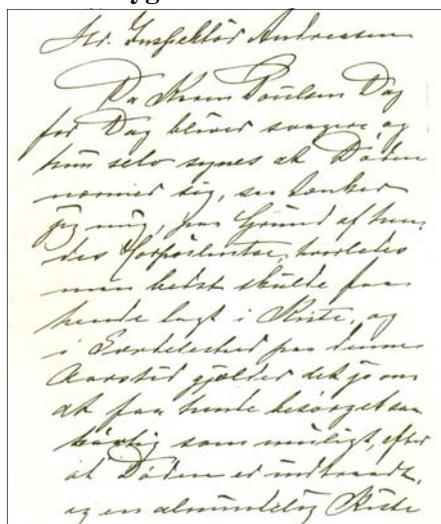 Hr. Inspektör Andreasen
Da Karen Poulsen Dag
for Dag bliver svagere og
hun selv synes at Döden
nærmer sig, saa tænker
jeg mig, paa Grund af hen
des Korpulentse, hvorledes
man bedst skulde faa
hende lagt i Kiste, og
i Særdeleshed paa denne
Aarstid gjælder det jo om
at faa hende besörget saa
hurtig som muligt, efter
at Döden er indtraadt,
og en almindelig Kiste